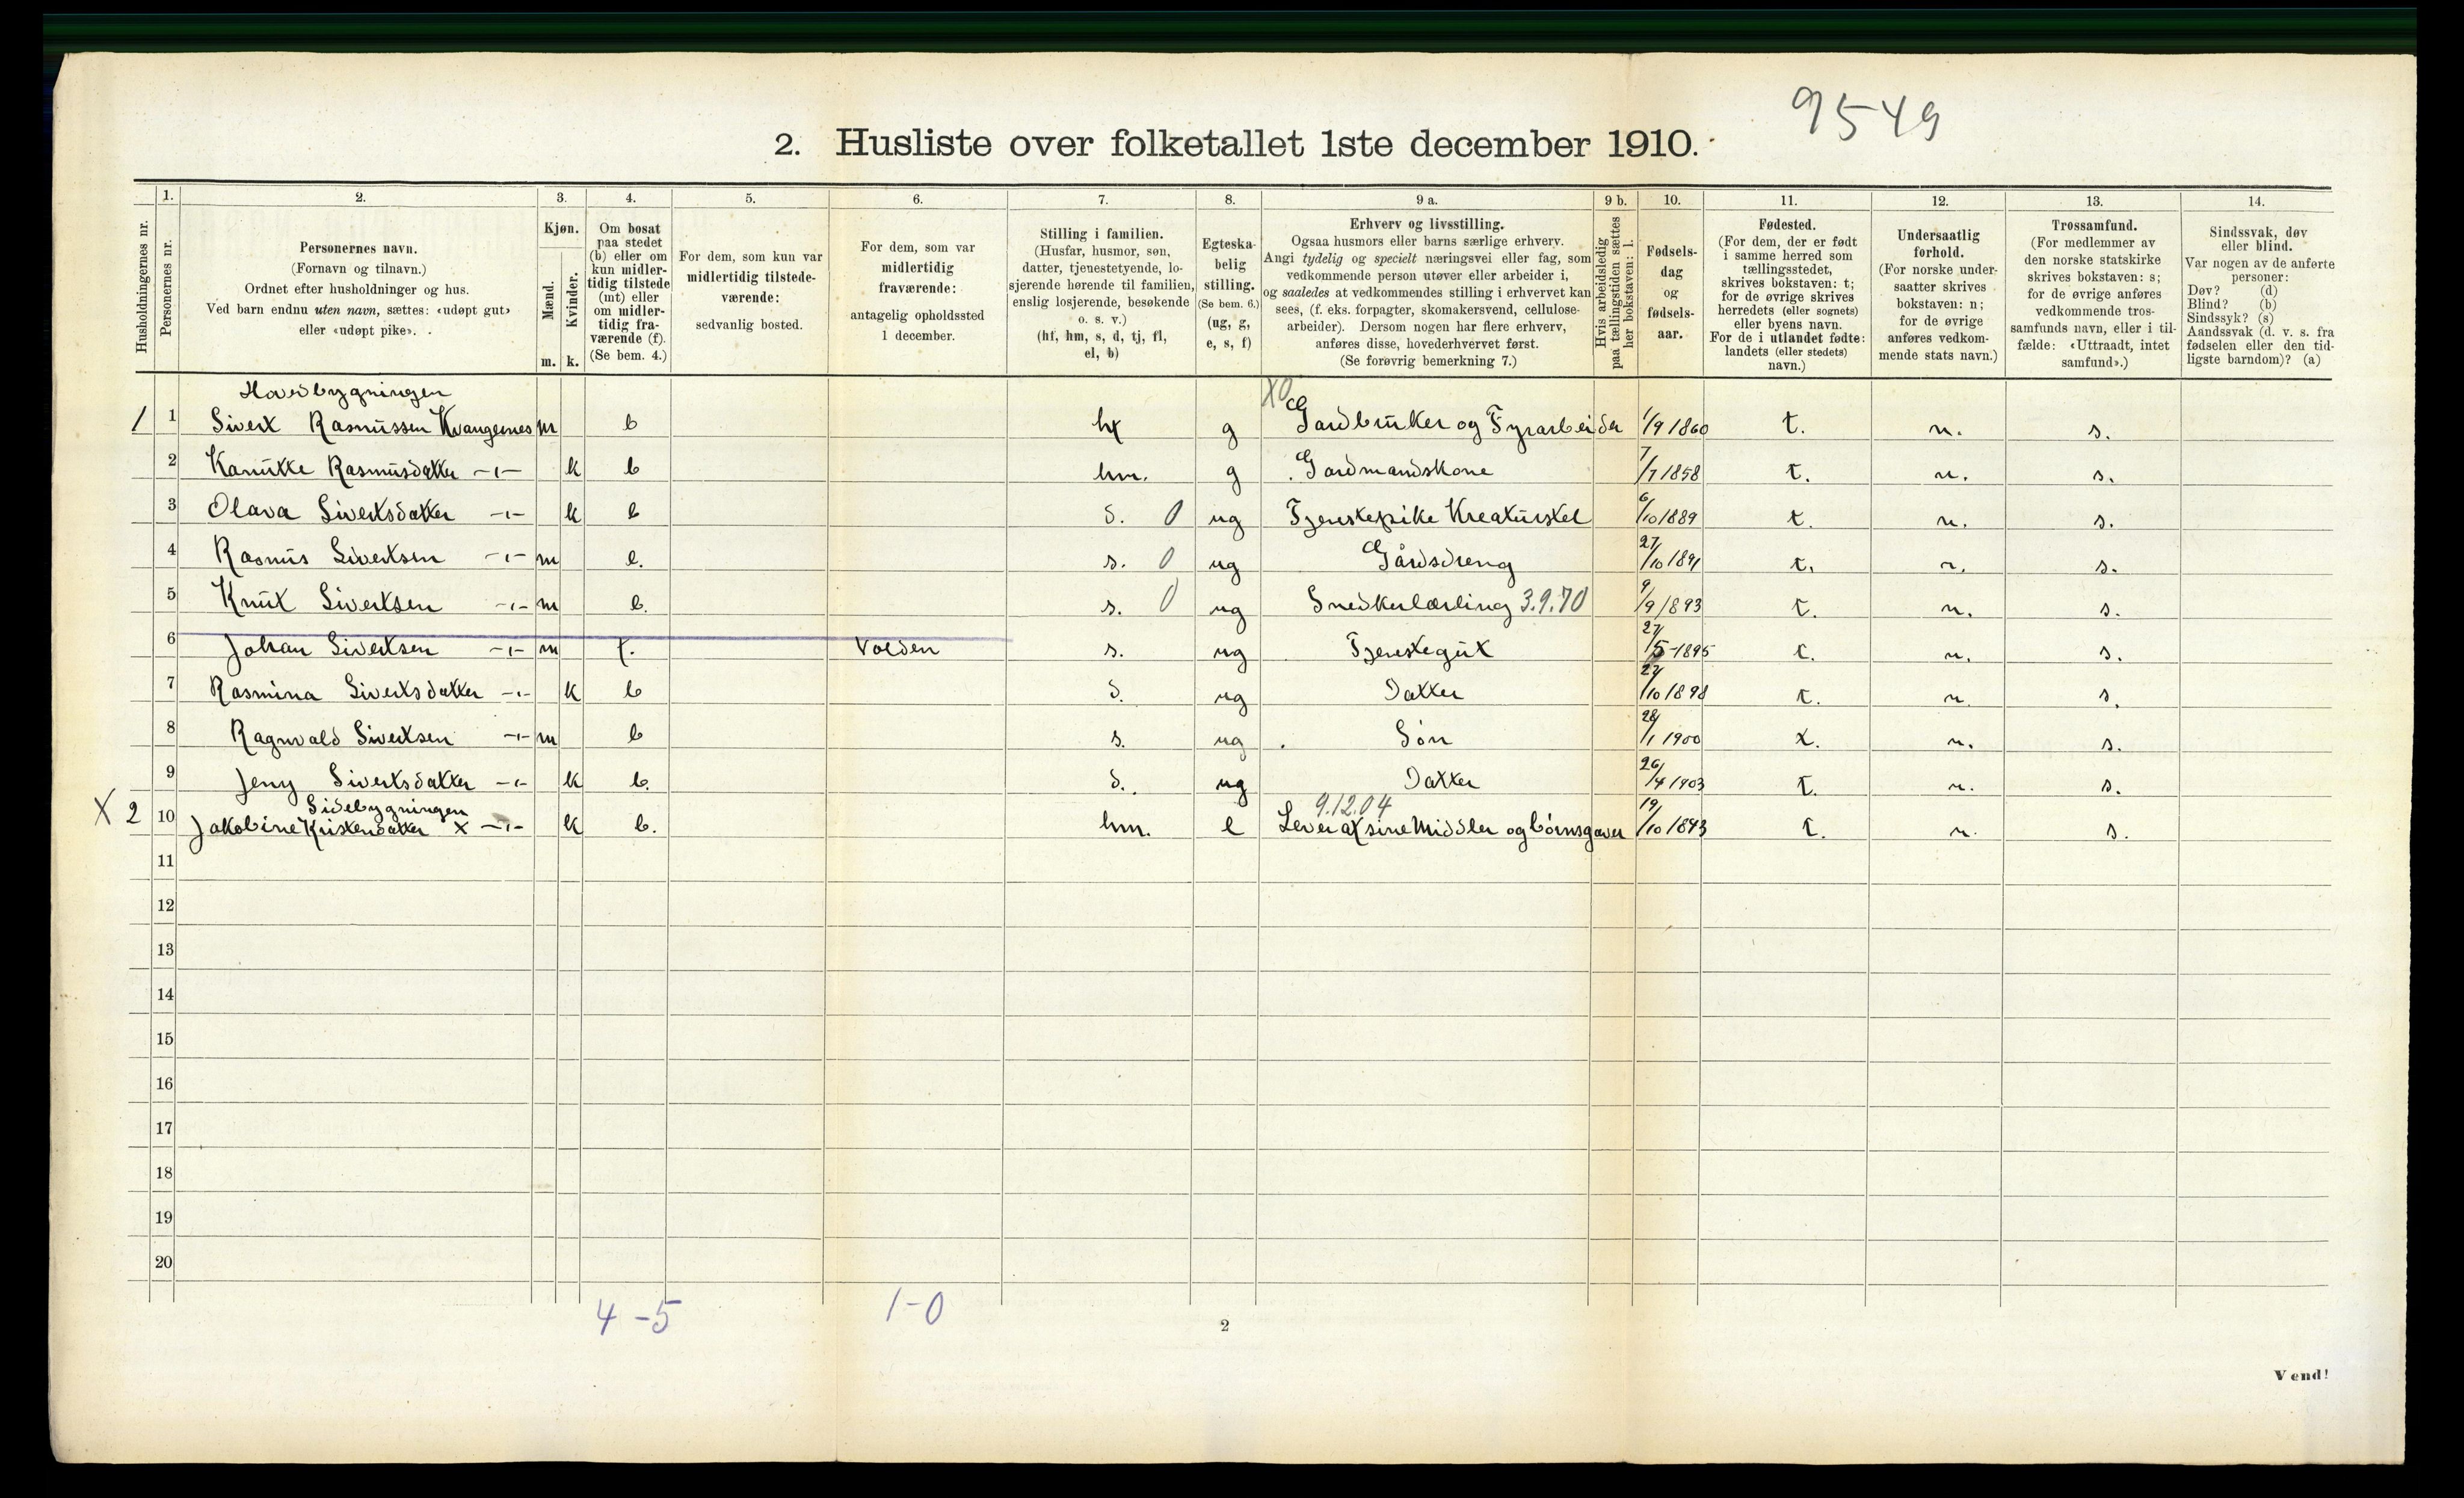 9549
2. Husliste over folketallet 1ste december 1910.
Husholdningernes nr.
1.
Personernes nr.
2.
Personernes navn.
(Fornavn og tilnavn.)
Ordnet efter husholdninger og hus.
Ved barn endnu uten navn, sættes: «udøpt gut»
eller «udøpt pike».
3.
Kjøn.
Mænd.
m.
Kvinder.
k.
4.
Om bosat
paa stedet
(b) eller om
kun midler-
tidig tilstede
(mt) eller
om midler-
tidig fra-
værende (f).
(Se bem. 4.)
5.
For dem, som kun var
midlertidig tilstede-
værende:
sedvanlig bosted.
6.
For dem, som var
midlertidig
fraværende:
antagelig opholdssted
1 december.
7.
Stilling i familien.
(Husfar, husmor, søn,
datter, tjenestetyende, lo-
sjerende hørende til familien,
enslig losjerende, besøkende
o. s. v.)
(hf, hm, s, d, tj, fl,
el, b)
8.
Egteska-
belig
stilling.
(Se bem. 6.)
(ug, g,
e, s, f)
9 a.
Erhverv og livsstilling.
Ogsaa husmors eller barns særlige erhverv.
Angi tydelig og specielt næringsvei eller fag, som
vedkommende person utøver eller arbeider i,
og saaledes at vedkommendes stilling i erhvervet kan
sees, (f. eks. forpagter, skomakersvend, cellulose-
arbeider). Dersom nogen har flere erhverv,
anføres disse, hovederhvervet først.
(Se forøvrig bemerkning 7.)
9 b.
Hvis arbeidsledig
paa tællingstiden sættes
her bokstaven: l.
10.
Fødsels-
dag
og
fødsels-
aar.
11.
Fødested.
(For dem, der er født
i samme herred som
tællingsstedet,
skrives bokstaven: t;
for de øvrige skrives
herredets (eller sognets)
eller byens navn.
For de i utlandet fødte:
landets (eller stedets)
navn.)
12.
Undersaatlig
forhold.
(For norske under-
saatter skrives
bokstaven: n;
for de øvrige
anføres vedkom-
mende stats navn.)
13.
Trossamfund.
(For medlemmer av
den norske statskirke
skrives bokstaven: s;
for de øvrige anføres
vedkommende tros-
samfunds navn, eller i til-
fælde: «Uttraadt, intet
samfund».)
14.
Sindssvak, døv
eller blind.
Var nogen av de anførte
personer:
Døv? (d)
Blind? (b)
Sindssyk? (s)
Aandssvak (d. v. s. fra
fødselen eller den tid-
ligste barndom)? (a)
Hovedbygningen
X0
1 1 Sivert Rasmussen Kvangernes m b hf g Gardbruker og Fyrarbeider 1/9 1860 t. n. s.
2 Kanutte Rasmusdatter -"- k b hm. g Gardmandskone 7/7 1858 t. n. s.
3 Olava Sivertsdatter -"- k b d. 0 ug Tjenestepike Kreaturstel 6/10 1889 t. n. s.
4 Rasmus Sivertsen -"- m b. s. 0 ug Gårdsdreng 27/10 1891 t. n. s.
5 Knut Sivertsen -"- m b. s. 0 ug Snedkerlærling 3.9.70 9/9 1893 t. n. s.
6 Johan Sivertsen -"- m f. Volden s. ug Tjenestegut 27/5-1895 t. n. s.
7 Rasmina Sivertsdatter -"- k b d. ug Datter 27/10 1898 t. n. s.
8 Ragnvald Sivertsen -"- m b s. ug Søn 28/1 1900 t. n. s.
9 Jeny Sivertsdatter -"- k b. d. ug Datter 26/4 1903 t. n. s.
Sidebygningen 9.12.04
X 2 10 Jakobine Kristendatter x -"- k b. hm. e Lever af sine Middler og børnsgaver 19/10 1843 t. n. s.
11
12
13
14
15
16
17
18
19
20
4-5 1-0
2
Vend!